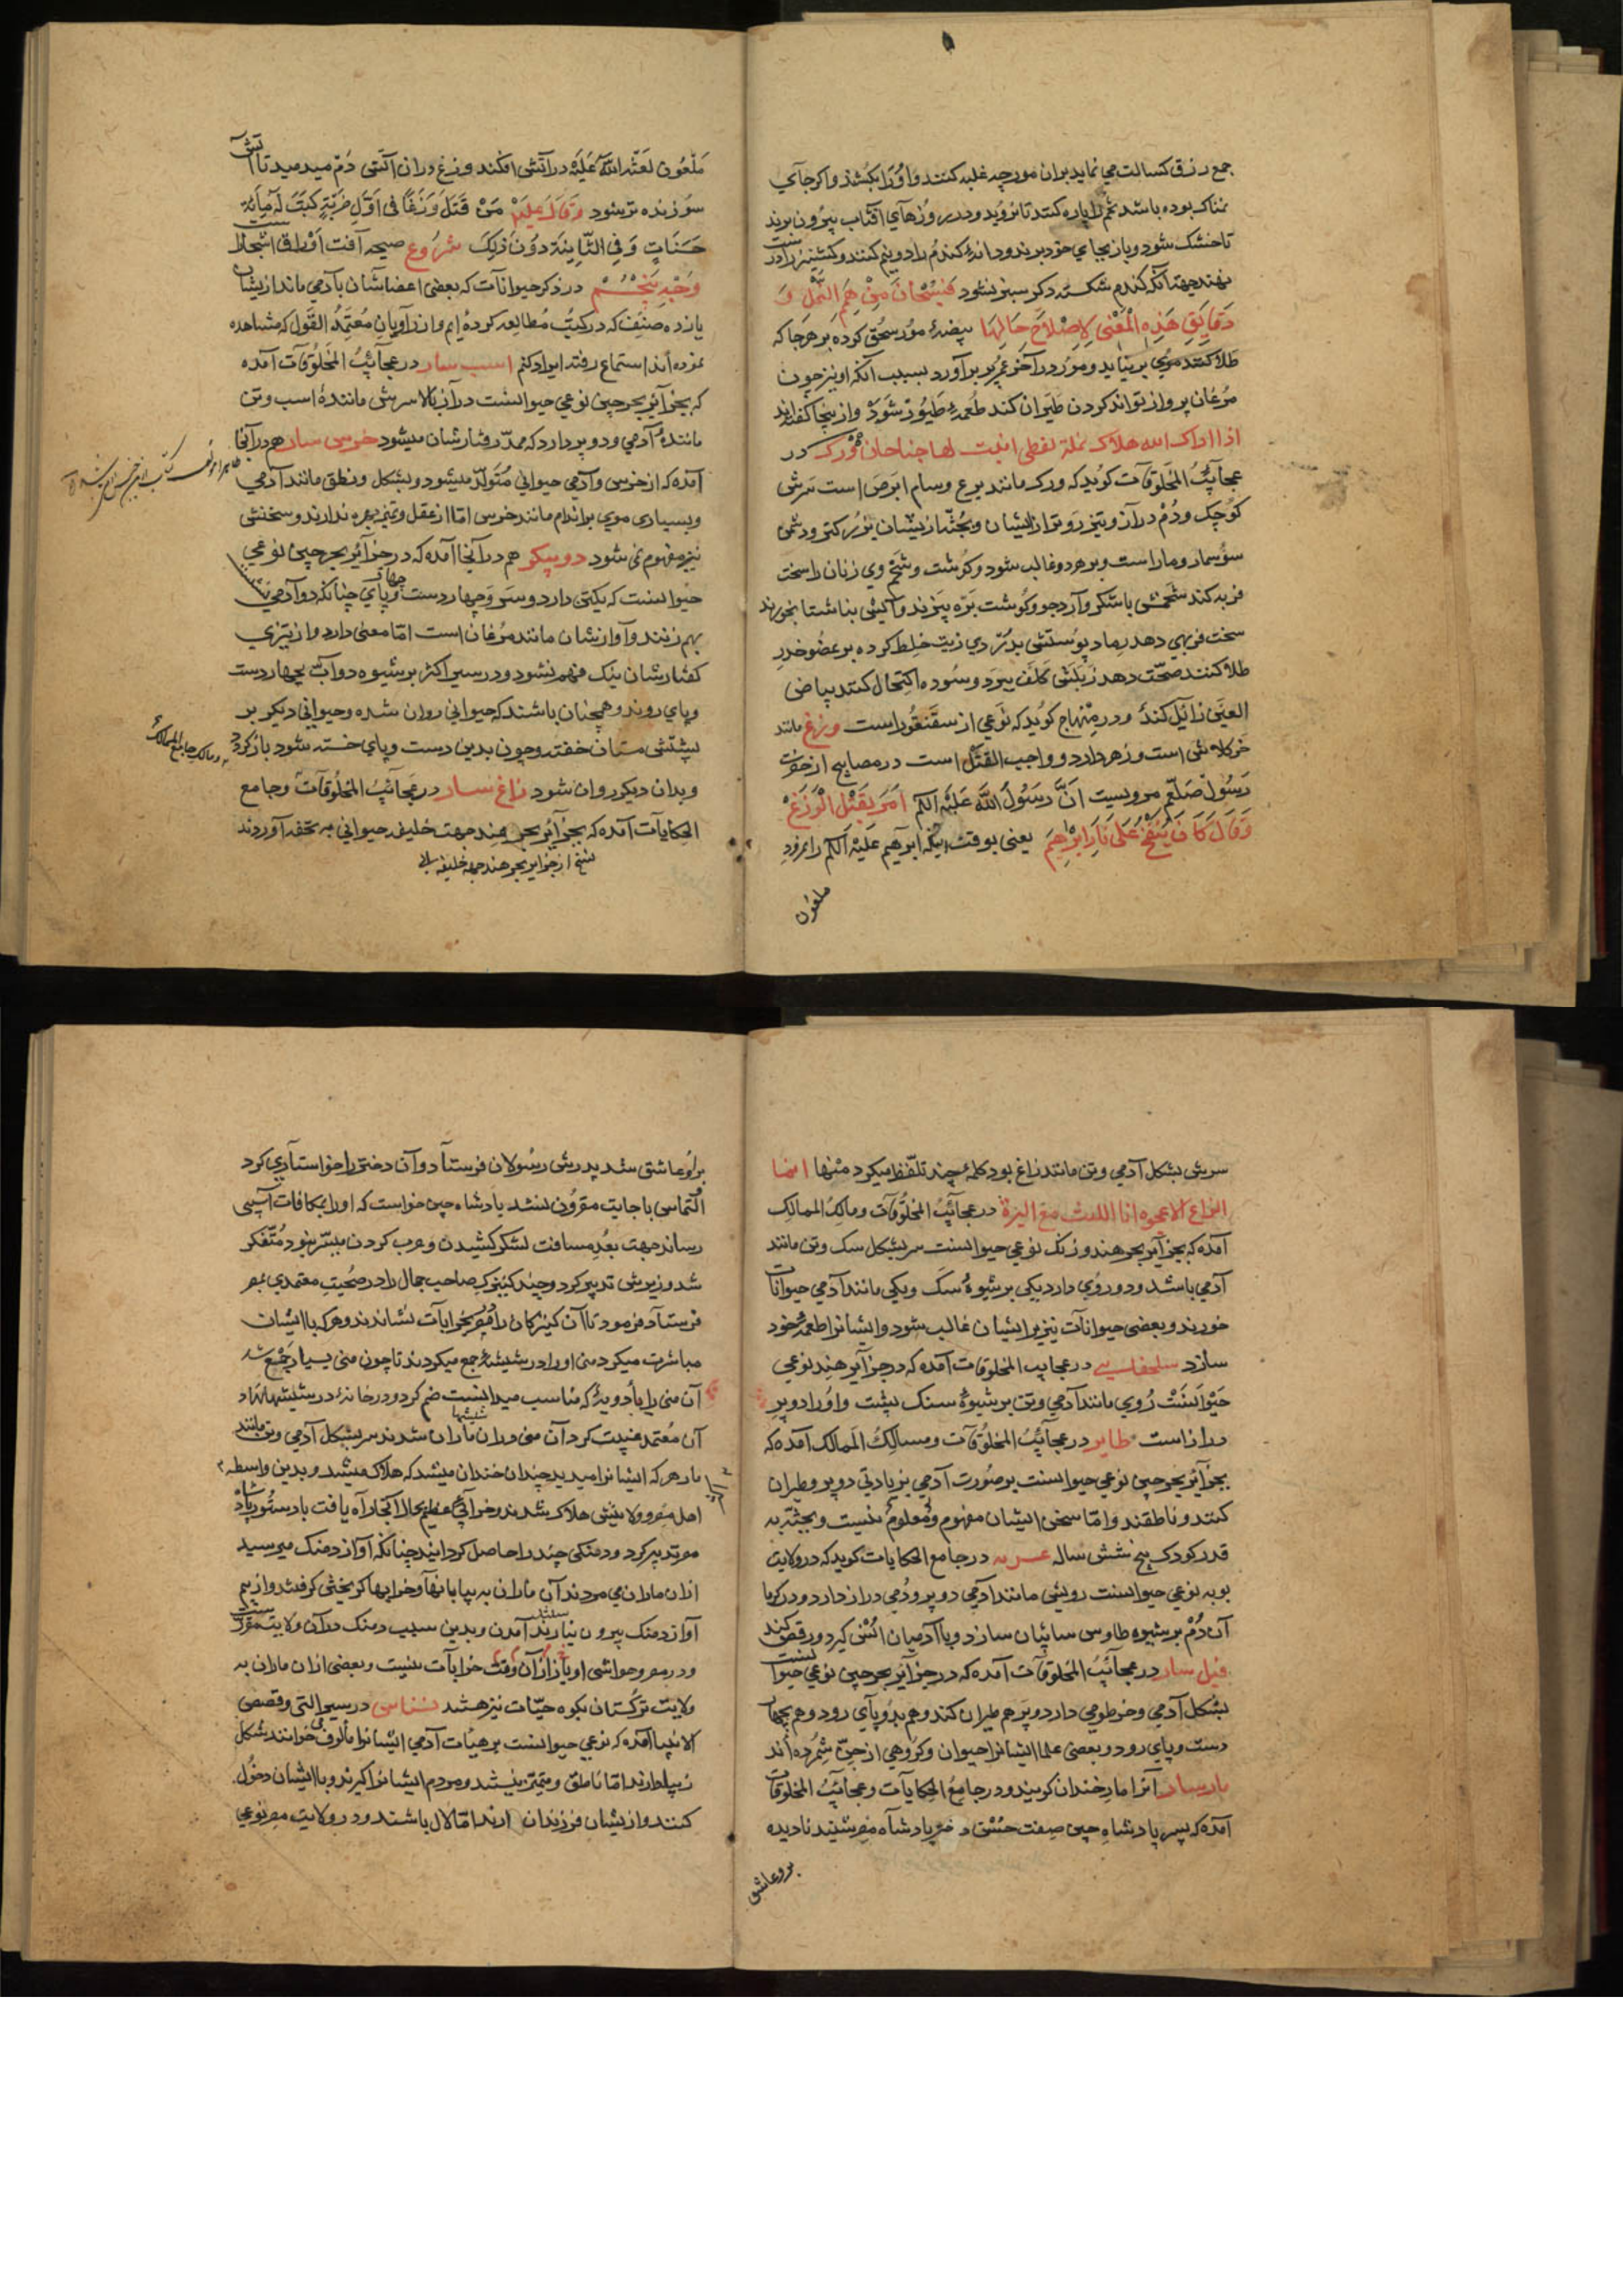 جمع رزق کسالت می نماید بران مورچه غلبه کنند و اورا بکشند و اکر جای
نمناک بوده باشد تخم را پاره کنند تا نروید و در روزهای افتاب بیرون برند
تا خشک شود و باز بجای خود برند و دانهٔ کندم را دو نیم کنند و کشنیز را درست
نهند جهة آنکه کندم شکسته دکر سبز نشود فسبحان من هم النمل و
دقایق هذه المعنی لاصلاح حالها بیضهٔ مور سحق کرده بر هر جا که
طلا کنند موی بر نیاید و مور در آخر عمر پر برآورد بسبب آنکه او نیز چون
مرغان پرواز تواند کردن طیران کند طعمهٔ طیور شود و ازینجا کفته اند
اذا اراد الله هلاک نملة انبت لها جناحان ورک در
عجائب المخلوقات کوید که ورک مانند وسام ابرص است سرش
کوچک و دم دراز و تیزروتر از ایشان و بجثه ازیشان بزرکتر و دشمن
سوسمار و مار است و بر هر دو غالب شود و کوشت و شحم وی زنان را سخت
فربه کند شحمش با شکر و آرد جو و کوشت بره پزند و آکینی بناشتا بخورند
سخت فربهی دهد رماد پوستش بدردی زیت خلط کرده بر عضو خدر
طلا کنند صحت دهد زبلش کلف ببرد و سوده اکتحال کنند بیاض
العین زائل کند و در منهاج کوید که نوعی از سقنقور است وزغ مانند
است و زهر دارد و واجب القتل است در مصابیح از حضرت
رسول صلعم مرویست ان رسول الله علیه السلم امر بقتل الوزغ
وقال کان ینفخ علی نار ابراهیم یعنی بوقت آنکه ابراهیم علیه السلم را نمرود
ملعون
ملعون لعنه الله علیه در آتش افکند وزغ دران آتش دم میدمید تا آتش
سوزنده تر شود وقال علیه من قتل وزغا فی اول ضربة کتبت له مائة
حسنات وفی الثانیة دون ذلک شروع صیحه آفت اوراق اشجار
وجه پنجم در ذکر حیوانات که بعضی اعضاشان بآدمی ماند ازیشان
یازده صنف که در کتب مطالعه کرده ایم و از راویان معتمد القول که مشاهده
نموده اند استماع رفته ایراد کنم اسب سار در عجائب المخلوقات آمده
که بجزائر بحر چین نوعی حیوانست دراز بالا سرش مانندهٔ اسب و تن
مانندهٔ آدمی و دو پر دارد که ممد رفتارشان میشود خرس سار هم در آنجا
آمده که از خرس و آدمی حیوانی متولد میشود و بشکل و نطق مانند آدمی
و بسیاری موی بر اندام مانند خرس اما از عقل و تمیز بهره ندارند و سخنش
نیز مفهوم نمی شود دو پیکر هم در آنجا آمده که در جزائر بحر چین نوعی
حیوانست که یکتن دارد و دو سر و چهار دست و چهار پای چنانکه دو آدمی پشت
بهم زنند و آوازشان مانند مرغان است اما معنی دارد و از تیزی
کفتارشان نیک فهم نشود و در سیر اکثر بر شیوه دواب بچهار دست
و پای روند و همچنان باشند که حیوانی روان شده و حیوانی دیکر بر
پشتش ستان خفته و چون بدین دست و پای خسته شود بازکردد
و بدان دیکر روان شود زاغ سار در عجائب المخلوقات و جامع
الحکایات آمده که بجزائر بحر هند جهت خلیفه حیوانی به تحفه آوردند
از جزایر بحر هند جهة خلیفه
و مسالک جامع الممالک
سرش بشکل آدمی و تن مانند زاغ بود کلمهٔ چند تلفظ میکرد منها انا
الزاغ الاعجوبه انا اللیث مع در عجائب المخلوقات ومالک الممالک
آمده که بجزائر بحر هند و زنک نوعی حیوانست سر بشکل سک و تن مانند
آدمی باشد و دو روی دارد یکی بر شیوهٔ سک و یکی مانند آدمی حیوانات
خورند و بعضی حیوانات نیز بر ایشان غالب شود و ایشانرا طعمهٔ خود
سازد سلحفات در عجایب المخلوقات آمده که در جزائر هند نوعی
حیوانست روی مانند آدمی و تن بر شیوهٔ سنک پشت و او را دو پر
دراز است طایر در عجائب المخلوقات ومسالک الممالک آمده که
بجزائر بحر چین نوعی حیوانست بر صورت آدمی بزیادتی دو پر و طیران
کنند و ناطقند و اما سخن ایشان مفهوم و معلوم نیست و بجثه به
قدر کودک پنج شش ساله در جامع الحکایات کوید که در ولایت
نوبه نوعی حیوانست رویش مانند آدمی دو پر و دمی دراز دارد و در کرما
آن دم بر شیوه طاوس سائبان سازد و با آدمیان انس کیرد و رقص کند
فیل سار در عجائب المخلوقات آمده که در جزائر بحر چین نوعی حیوانست
بشکل آدمی و خرطومی دارد و پر هم طیران کند و هم بدو پای رود و هم بچهار
دست و پای رود و بعضی علما ایشانرا حیوان و کروهی از جن شمرده اند
مارسار آنرا مار خندان کویند و در جامع الحکایات و عجائب المخلوقات
آمده که پسر پادشاه چین صفت حسن دختر پادشاه مصر شنید نادیده
برو عاشق
برو عاشق شد پدرش رسولان فرستاد و آن دختر را خواستاری کرد
التماس باجابت مقرون نشد پادشاه چین خواست که اورا بمکافات آسیبی
رساند جهت بعد مسافت لشکر کشیدن و حرب کردن میسر نبود متفکر
شد وزیرش تدبیر کرد و چند کنیزک صاحب جمال را در صحبت معتمدی بمصر
فرستاد و فرمود تا آن کنیزکان را بخرابات نشاندند و هر که با ایشان
مباشرت میکرد منی اورا در شیشهٔ جمع میکردند تا چون منی بسیار جمع شد
آن منی را با ادویهٔ که مناسب میدانست ضم کرد و در خانهٔ در شیشها نهاد
آن معتمد غیبت کرد آن منی دران شیشها ماران شدند سر بشکل آدمی و تن مانند
مار هر که ایشانرا میدید چندان خندان میشد که هلاک میشد و بدین واسطه
اهل مصر و ولایتش هلاک شدند و خرابی عظیم بحال آنجا راه یافت پادشاه
تدبیر کرد و دمنکی چند را حاصل کردانید چنانکه آواز دمنک میرسید
ازان ماران می مردند آن ماران به بیابانها و خرابها کریختن کرفتند و از بیم
آواز دمنک بیرون نیارستند آمدن و بدین سبب دمنک دران ولایت
و در مصر و حواشی او باز از آن وقت خرابات نیست و بعضی ازان ماران به
ولایت ترکستان بکوه حیات نیز هستند نسناس در سیر النبی و قصص
الانبیا آمده که نوعی حیوانست بر هیات آدمی ایشانرا خوانند شکل
زیبا دارند اما ناطق و متمیز نیستند و مردم ایشانرا کیرند و با ایشان دخول
کنند و ازیشان فرزندان آرند اما لال باشند و در ولایت مصر نوعی